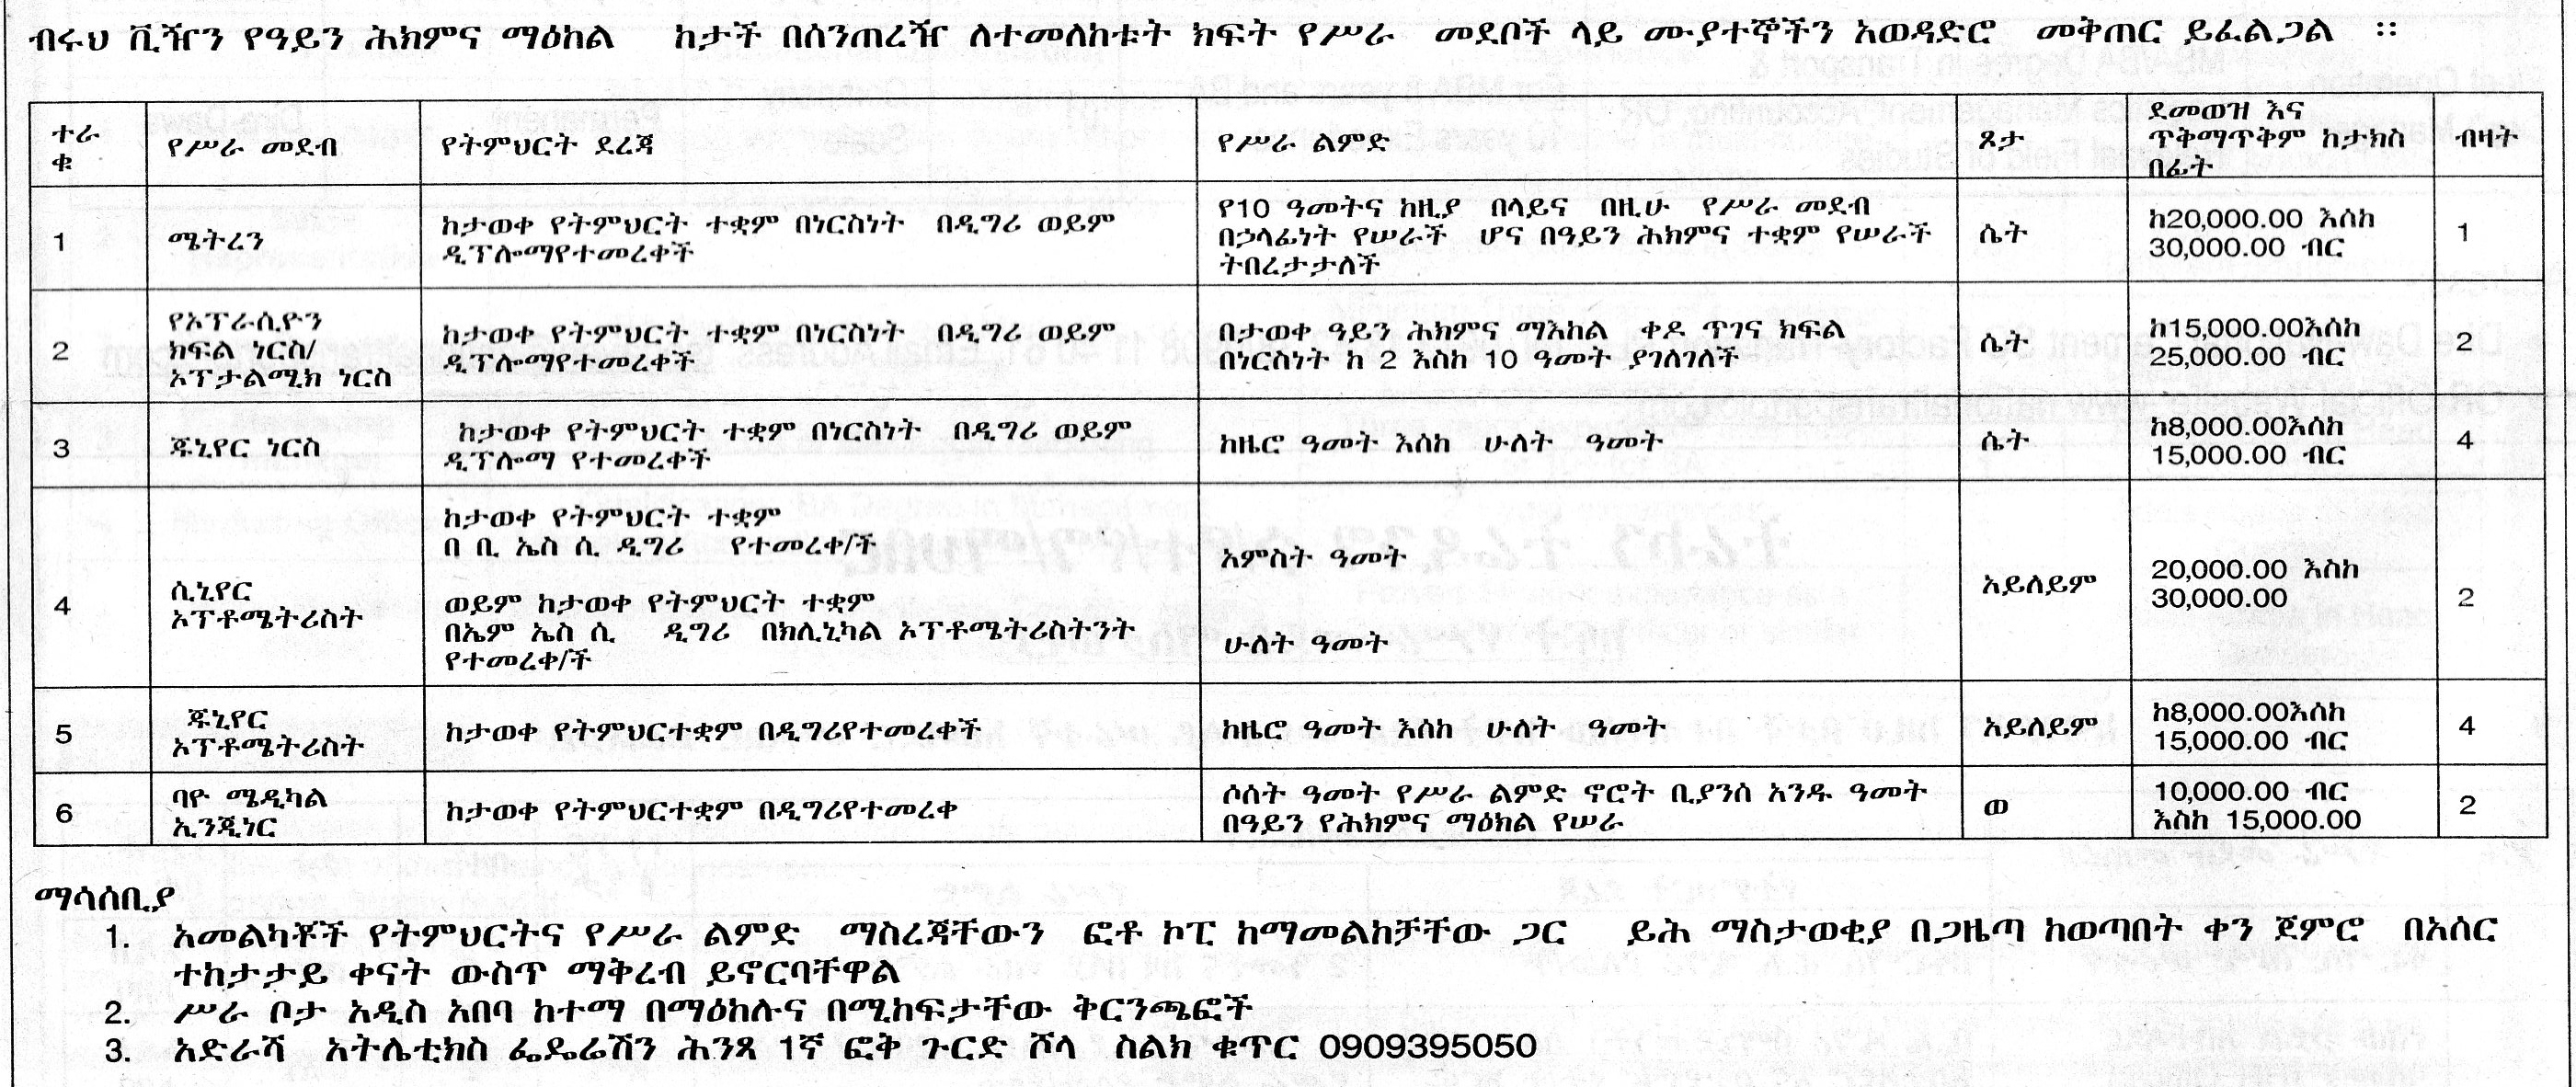 ብሩህ ቪዥን የዓይን ሕክምና ማዕከል ከታች በሰንጠረዥ ለተመለከቱት ክፍት የሥራ መደቦች ላይ ሙያተኞችን አወዳድሮ መቅጠር ይፈልጋል ፡፡
ተራ
ቁ
የሥራ መደብ
የትምህርት ደረጃ
የሥራ ልምድ
ጾታ
ደመወዝ እና
ጥቅማጥቅም ከታክስ
በፊት
ብዛት
1
ሜትረን
ከታወቀ የትምህርት ተቋም በነርስነት በዲግሪ ወይም
ዲፕሎማየተመረቀች
የ10 ዓመትና ከዚያ በላይና በዚሁ የሥራ መደብ
በኃላፊነት የሠራች ሆና በዓይን ሕክምና ተቋም የሠራች
ትበረታታለች
ሴት
ከ20,000.00 እሰከ
30,000.00 ብር
1
2
የኦፕራሲዮን
ክፍል ነርስ/
ኦፕታልሚክ ነርስ
ከታወቀ የትምህርት ተቋም በነርስነት በዲግሪ ወይም
ዲፕሎማየተመረቀች
በታወቀ ዓይን ሕክምና ማእከል ቀዶ ጥገና ክፍል
በነርስነት ከ 2 እስከ 10 ዓመት ያገለገለች
ሴት
ከ15,000.00እሰከ
25,000.00 ብር
2
3
ጁኒየር ነርስ
ከታወቀ የትምህርት ተቋም በነርስነት በዲግሪ ወይም
ዲፕሎማ የተመረቀች
ከዜሮ ዓመት እሰከ ሁለት ዓመት
ሴት
ከ8,000.00እሰከ
15,000.00 ብር
4
4
ሲኒየር
ኦፕቶሜትሪስት
ከታወቀ የትምህርት ተቋም
በ ቢ ኤስ ሲ ዲግሪ የተመረቀ/ች
ወይም ከታወቀ የትምህርት ተቋም
በኤም ኤስ ሲ ዲግሪ በክሊኒካል ኦፕቶሜትሪስትንት
የተመረቀ/ች
አምስት ዓመት
ሁለት ዓመት
አይለይም
20,000.00 እስከ
30,000.00
2
5
ጁኒየር
ኦፕቶሜትሪስት
ከታወቀ የትምህርተቋም በዲግሪየተመረቀች
ከዜሮ ዓመት እሰከ ሁለት ዓመት
አይለይም
ከ8,000.00እሰከ
15,000.00 ብር
4
6
ባዮ ሜዲካል
ኢንጂነር
ከታወቀ የትምህርተቋም በዲግሪየተመረቀ
ሶስት ዓመት የሥራ ልምድ ኖሮት ቢያንስ አንዱ ዓመት
በዓይን የሕክምና ማዕክል የሠራ
ወ
10,000.00 ብር
እስከ 15,000.00
2
ማሳሰቢያ
1. አመልካቾች የትምህርትና የሥራ ልምድ ማስረጃቸውን ፎቶ ኮፒ ከማመልከቻቸው ጋር ይሕ ማስታወቂያ በጋዜጣ ከወጣበት ቀን ጀምሮ በአሰር
ተከታታይ ቀናት ውስጥ ማቅረብ ይኖርባቸዋል
2. ሥራ ቦታ አዲስ አበባ ከተማ በማዕከሉና በሚከፍታቸው ቅርንጫፎች
3. አድራሻ አትሌቲክስ ፌዴሬሽን ሕንጻ 1ኛ ፎቅ ጉርድ ሾላ ስልክ ቁጥር 0909395050